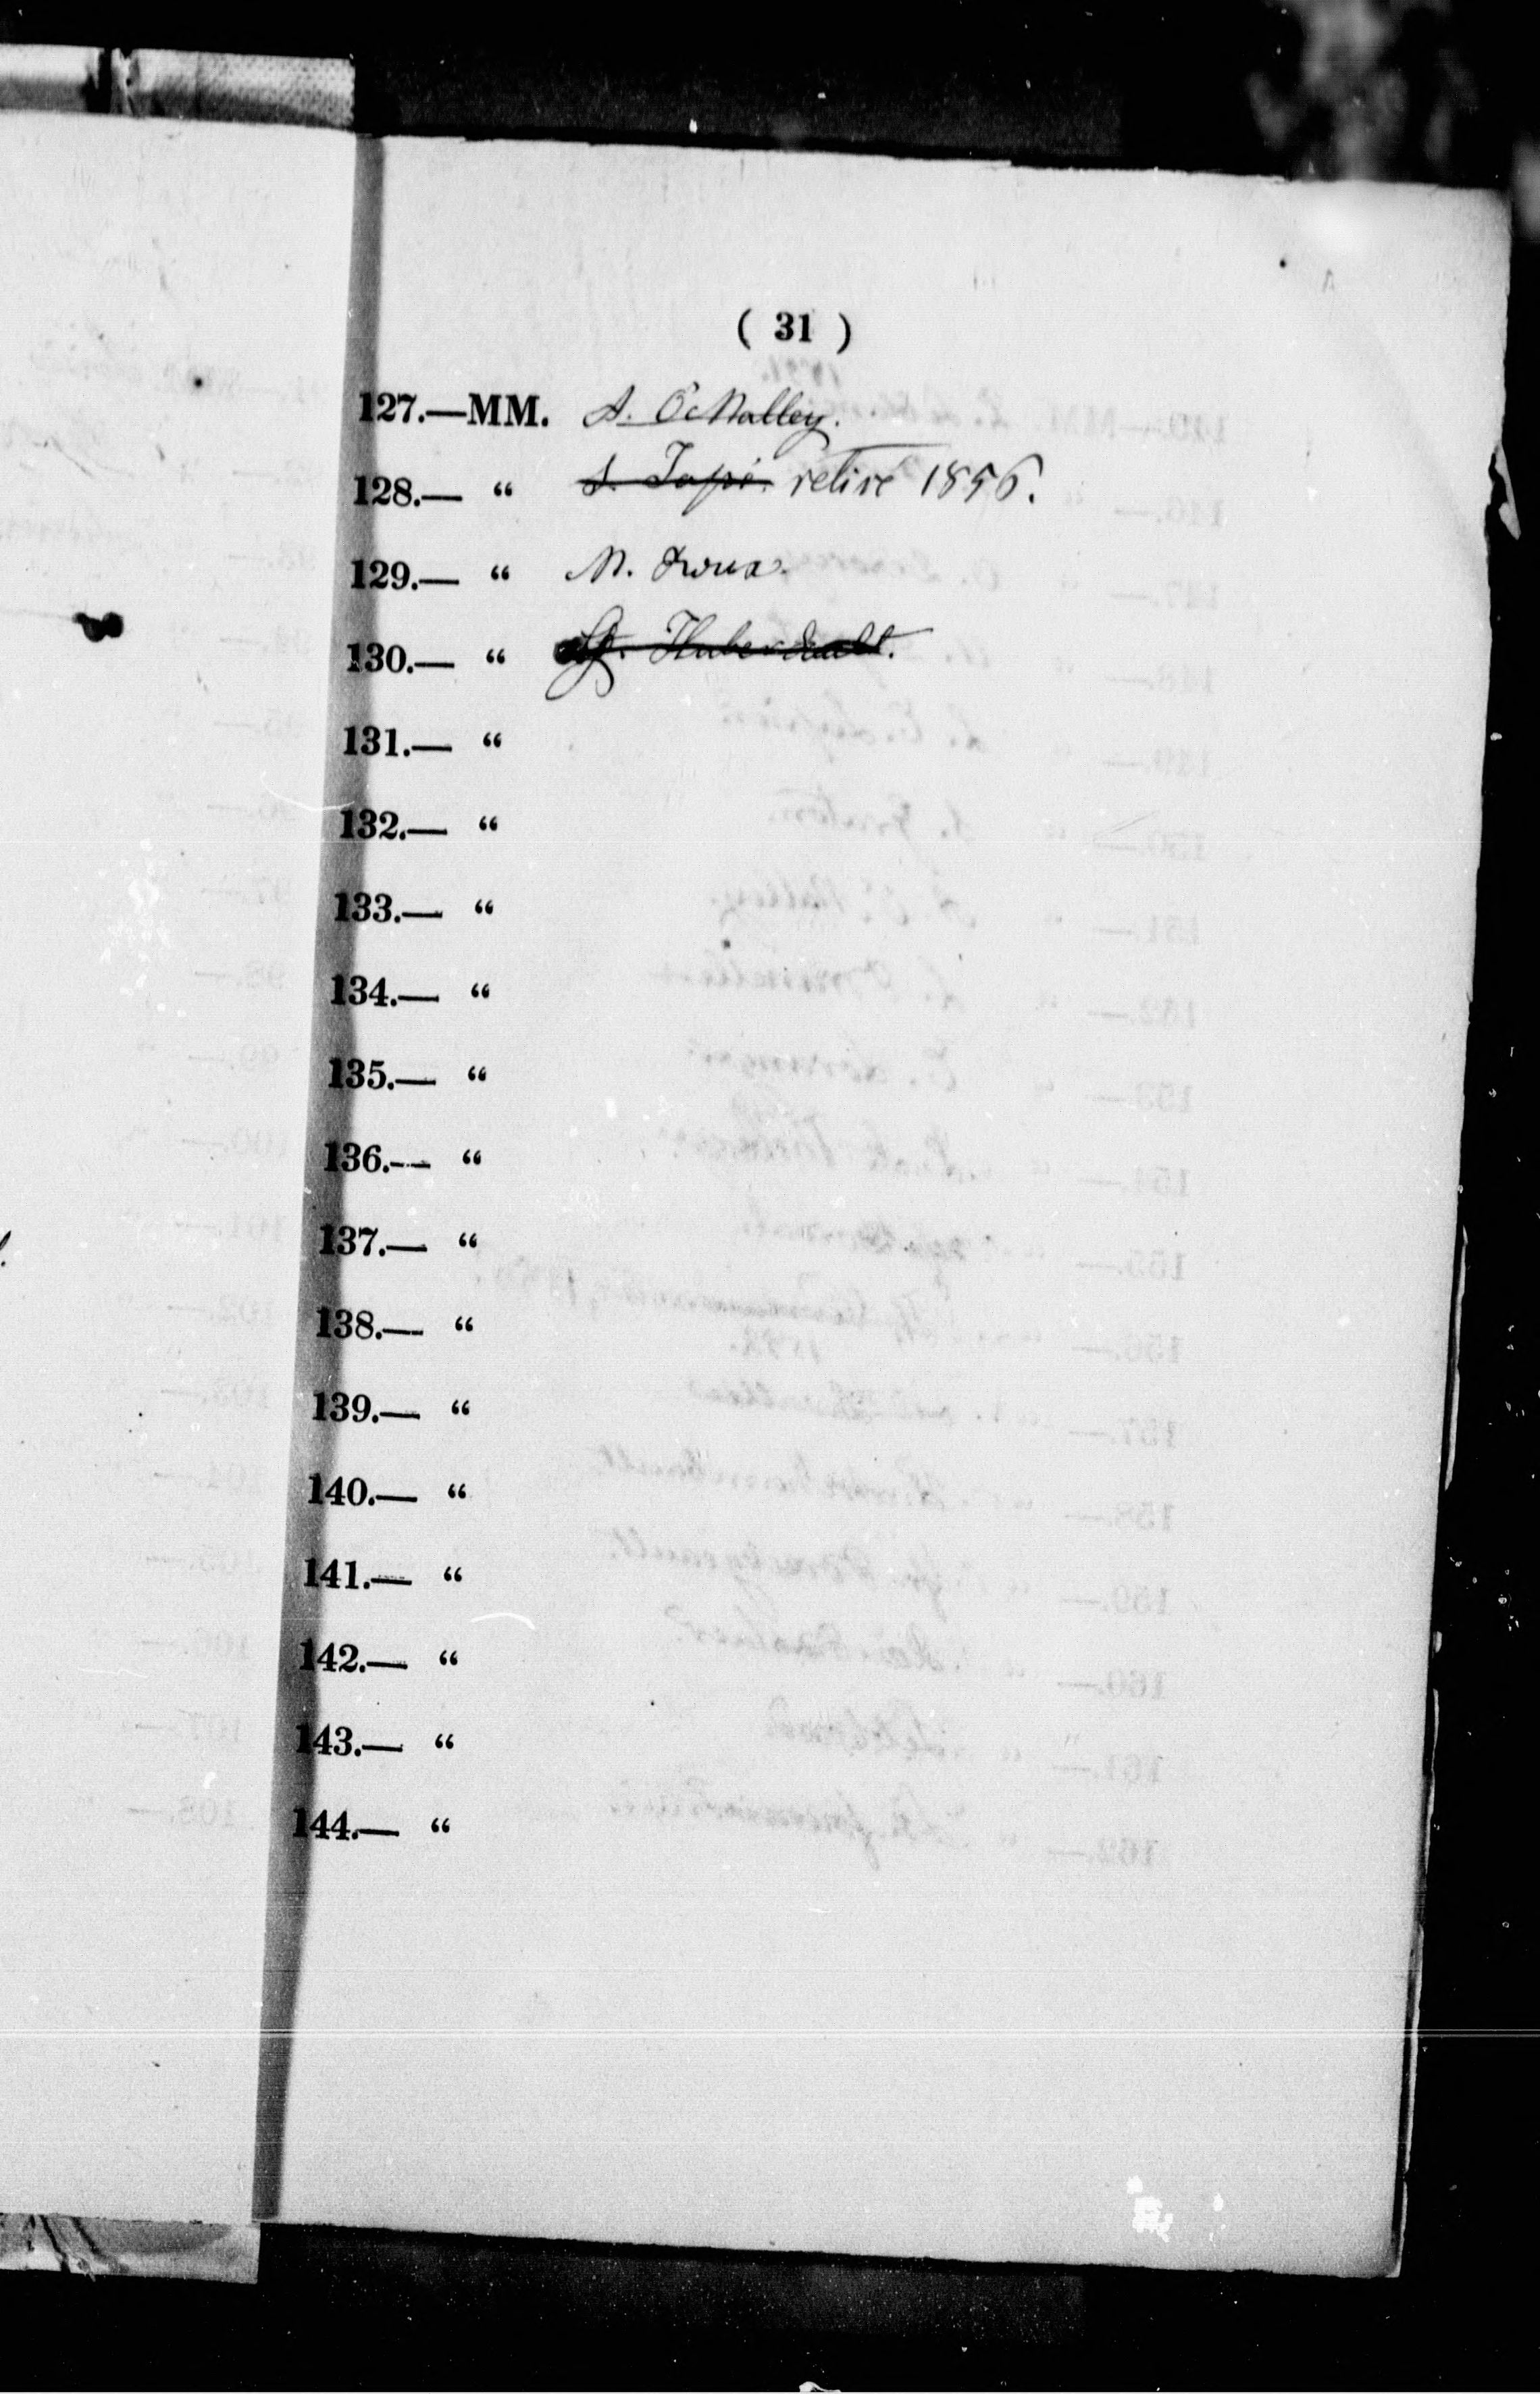 ( 31 )
127.—MM. A. O'Malley.
128.— “ S. Tapé. retiré 1856.
129.— “ M. Proux.
130.— “ Huberdeault.
131.— “
132.— “
133.— “
134.— “
135.— “
136.— “
137.— “
138.— “
139.— “
140.— “
141.— “
142.— “
143.— “
144.— “